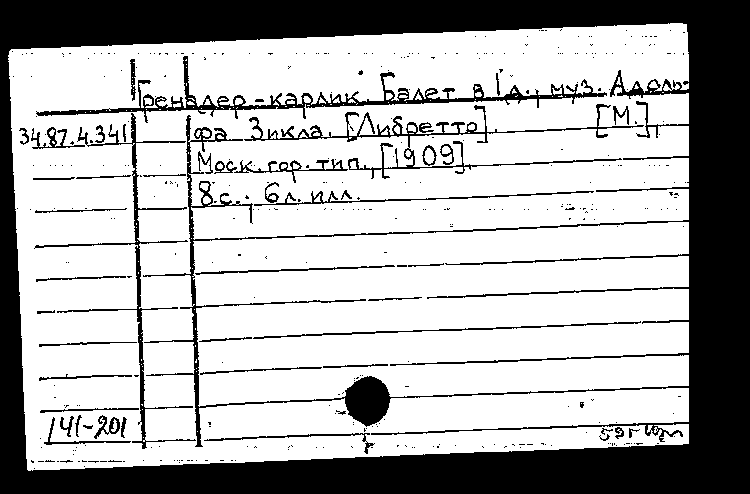 Гренадер-карлик. Балет в 1 д., муз. Адоль-
34.87.4.341 фа Зикла. [Либретто]. [М.],
Моск. гор. тип., [1909].
8 с.; 6 л. илл.
141-201
59г